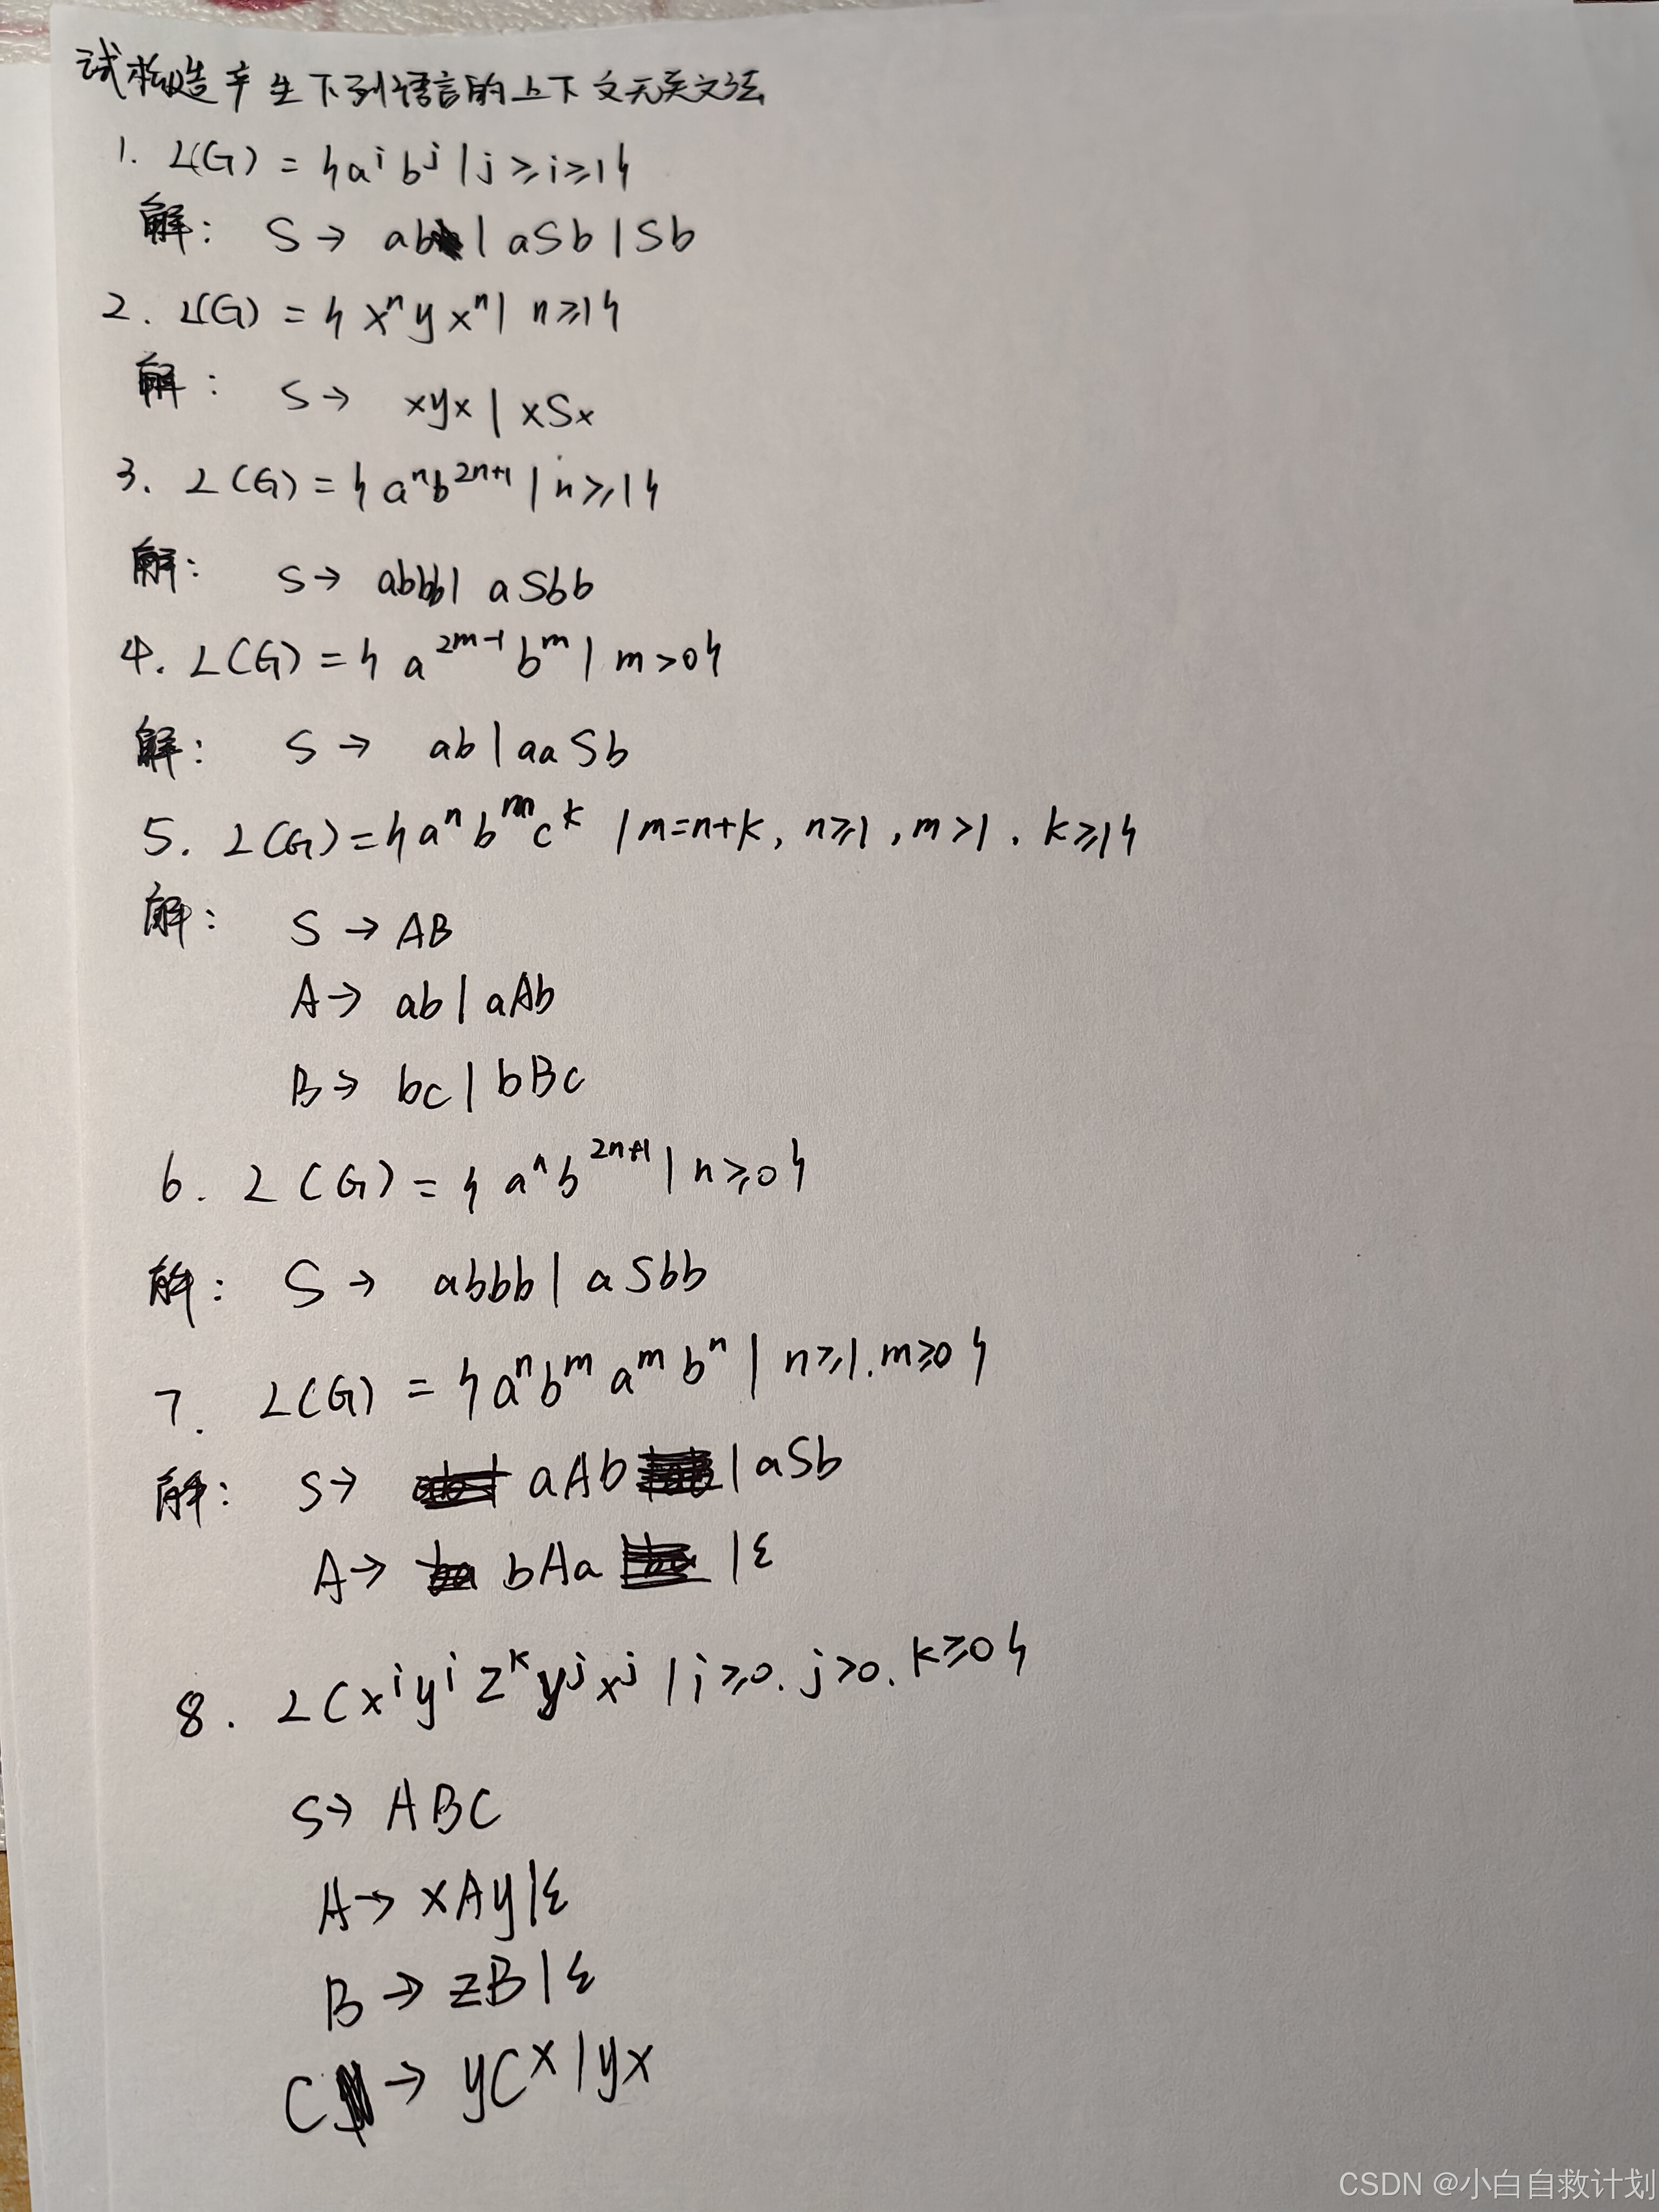 试构造产生下列语言的上下文无关文法
1. L(G) = {aⁱbʲ | j≥i≥1}
解: S → ab | aSb | Sb
2. L(G) = {xⁿyxⁿ | n≥1}
解: S → xyx | xSx
3. L(G) = {aⁿb²ⁿ⁺¹ | n≥1}
解: S → abbb | aSbb
4. L(G) = {a²ᵐ⁻¹bᵐ | m>0}
解: S → ab | aaSb
5. L(G) = {aⁿbᵐcᵏ | m=n+k, n≥1, m>1, k≥1}
解: S → AB
A → ab | aAb
B → bc | bBc
6. L(G) = {aⁿb²ⁿ⁺¹ | n≥0}
解: S → abbb | aSbb
7. L(G) = {aⁿbᵐaᵐbⁿ | n≥1, m≥0}
解: S → aAb | aSb
A → bAa | ε
8. L(xⁱyⁱzᵏyʲxʲ | i≥0, j>0, k≥0}
S → ABC
A → xAy | ε
B → zB | ε
C → yCx | yx
CSDN @小白自救计划